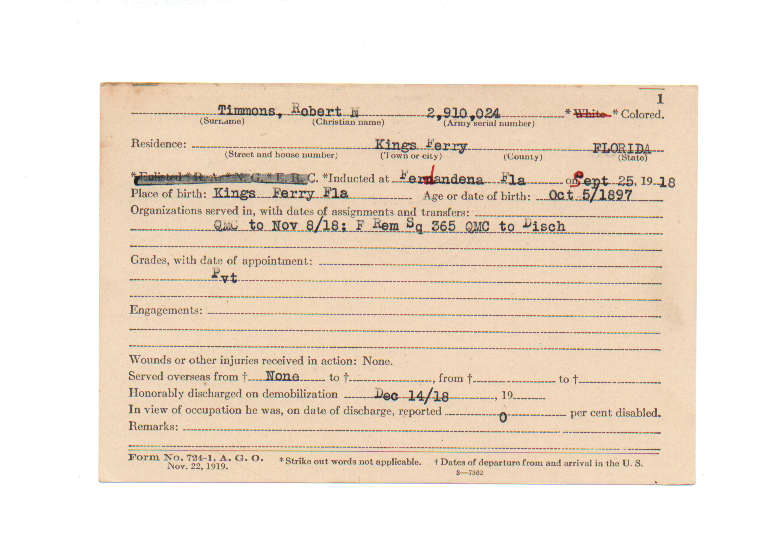 1
Timmons, Robert N 2,910,024 * White * Colored.
(Surname) (Christian name) (Army serial number)
Residence: Kings Ferry FLORIDA
(Street and house number) (Town or city) (County) (State)
* Enlisted * R. A. * N. G. * E. R. C. *Inducted at Fernandena Fla on Sept 25, 1918
Place of birth: Kings Ferry Fla Age or date of birth: Oct 5/1897
Organizations served in, with dates of assignments and transfers:
QMC to Nov 8/18; F Rem Sq 365 QMC to Disch
Grades, with date of appointment:
Pvt
Engagements:
Wounds or other injuries received in action: None.
Served overseas from † None to †, from † to †
Honorably discharged on demobilization Dec 14/18, 19
In view of occupation he was, on date of discharge, reported 0 per cent disabled.
Remarks:
Form No. 724-1, A. G. O. * Strike out words not applicable. † Dates of departure from and arrival in the U. S.
Nov. 22, 1919. 3—7362